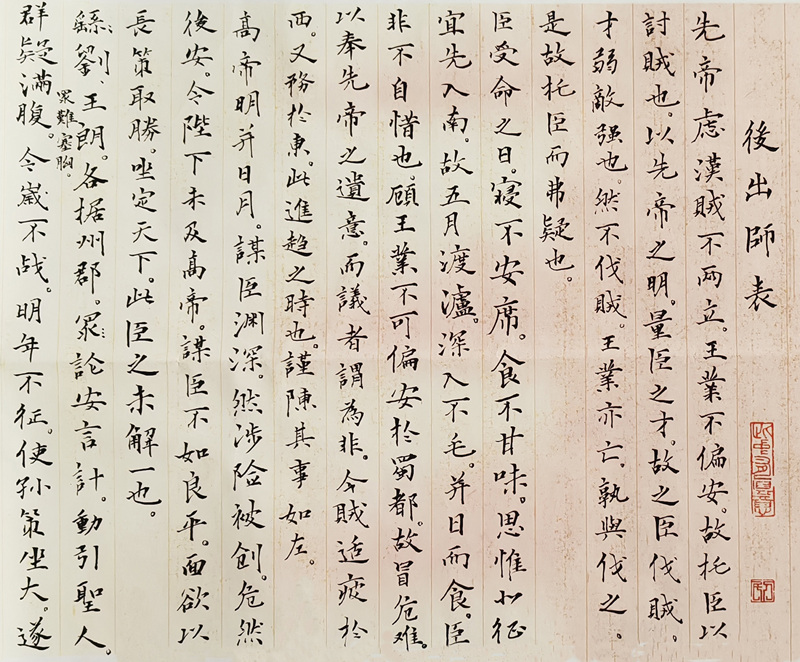 後出師表
先帝慮漢賊不兩立。王業不偏安。故托臣以
討賊也。以先帝之明。量臣之才。故之臣伐賊。
才弱敵强也。然不伐賊。王業亦亡。孰與伐之。
是故托臣而弗疑也。
臣受命之日。寝不安席。食不甘味。思惟北征
宜先入南。故五月渡瀘。深入不毛。并日而食。臣
非不自惜也。顧王業不可偏安於蜀都。故冒危难。
以奉先帝之遺意。而議者謂為非。今賊适疲於
西。又務於東。此進趋之時也。謹陳其事如左。
高帝明并日月。謀臣渊深。然涉险被創。危然
後安。今陛下未及高帝。謀臣不如良平。面欲以
長策取勝。坐定天下。此臣之未解一也。
繇劉、王朗。各据州郡。眾論安言計。動引聖人。
眾難塞胸。
群疑滿腹。今嵗不战。明年不征。使孙策坐大。遂